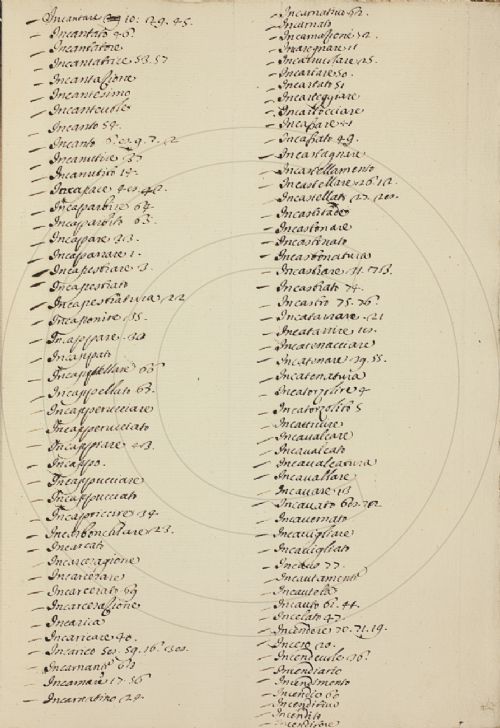 Incantare 10. 29. 45.
— Incantato 46.
— Incantatore
— Incantatrice 53.57
— Incantasione
— Incantesimo
— Incanteuole
— Incanto 54.
— Incanto
— Incanutire
— Incanutito 14.
— Incapace
— Incaparbire 64
— Incaparbito 63.
— Incapare 33.
— Incaparrare 1.
— Incapestrare 3.
— Incapestrato
— Incapestratura 22
— Incaponire 35.
— Incappare
— Incappati
— Incappellare
— Incappellato 63.
— Incapperucciare
— Incapperucciato
— Incappiare
— Incappo.
— Incappucciare
— Incappucciato
— Incapriccire 34.
— Incarbonchiare 23.
— Incarcati
— Incarceragione
— Incarcerare
— Incarcerato 69
— Incarcerasione
— Incarica
— Incaricare 40.
— Incarico
— Incarnare
— Incarnare 17. 56
— Incarnatino 24.
— Incarnatiuo 62.
— Incarnato
— Incarnasione 52.
— Incarognare 11
— Incarrucolare 25.
— Incartare 50.
— Incartato 51
— Incarteggiare
— Incartocciare
— Incassare
— Incassato 49.
— Incastagnare
— Incastellamento
— Incastellare 26.12.
— Incastellati
— Incastitade
— Incastonare
— Incastonato
— Incastonatura
— Incastrare
— Incastrato 74.
— Incastro 75. 76.
— Incatarrare 21
— Incatarrire
— Incatenacciare
— Incatenare 29.55.
— Incatenatura
— Incatorzolire 4
— Incatorzolito 5
— Incattiuire
— Incaualcare
— Incaualcato
— Incaualcatura
— Incauallare
— Incauare 13
— Incauato
— Incauernato
— Incauigliare
— Incauigliato
— Incauo 77.
— Incautamente
— Incautela
— Incauto 61. 44.
— Incelato 47.
— Incendere 70.71.19.
— Incero 20.
— Incendeuole 36.
— Incendiario
— Incendimento
— Incendio 60
— Incenditiuo
— Incendito
— Incenditore